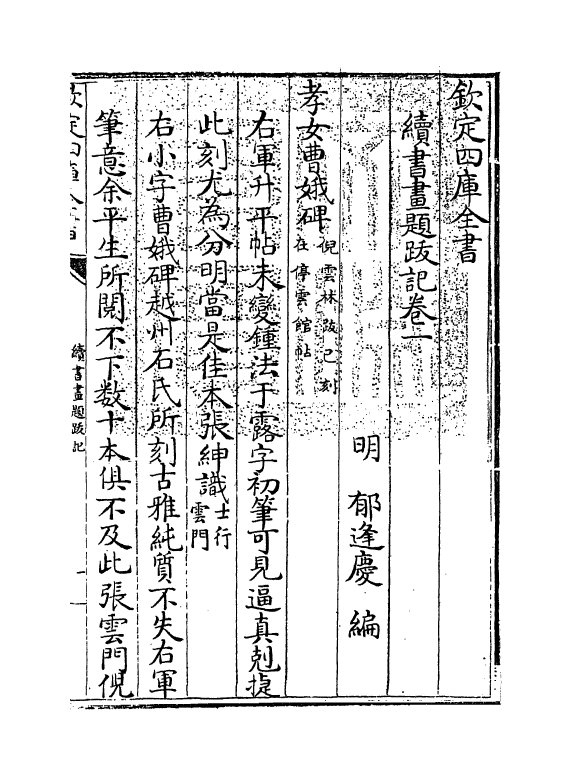 欽定四庫全書
續書畫題跋記卷一
明 郁逢慶 編
孝女曹娥碑倪雲林跋已刻在停雲館帖
右軍升平帖未變鍾法于露字初筆可見逼真剋捷
此刻尤為分明當是佳本張紳識士行雲門
右小字曹娥碑越州石氏所刻古雅純質不失右軍
筆意余平生所閱不下數十本俱不及此張雲門倪
欽定四庫全書
續書畫題跋記
一